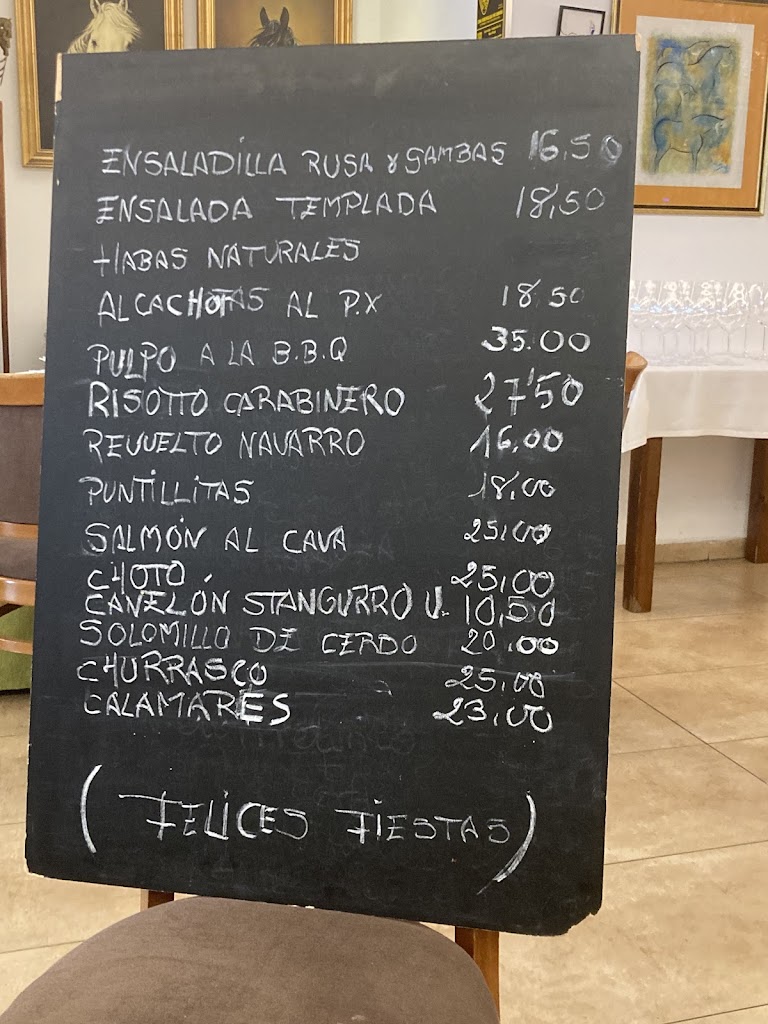 ENSALADILLA RUSA Y GAMBAS 16,50
ENSALADA TEMPLADA 18,50
HABAS NATURALES
ALCACHOFAS AL P.X 18.50
PULPO A LA B.B.Q 35.00
RISOTTO CARABINERO 27'50
REVUELTO NAVARRO 16,00
PUNTILLITAS 18,00
SALMÓN AL CAVA 25,00
CHOTO 25,00
CANELÓN STANGURRO U. 10,50
SOLOMILLO DE CERDO 20.00
CHURRASCO 25,00
CALAMARES 23,00
(FELICES FIESTAS)